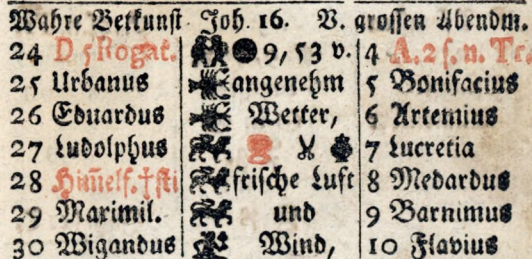 Wahre Betkunst Joh. 16. V. grossen Abendm.
24 D 5 Rogat. 9, 53 v. 4 A. 2 s. n. Tr.
25 Urbanus angenehm 5 Bonifacius
26 Eduardus Wetter, 6 Artemius
27 Ludolphus 7 Lucretia
28 Him̅elf. †sti frische Luft 8 Medardus
29 Maximil. und 9 Barnimus
30 Wigandus Wind, 10 Flavius